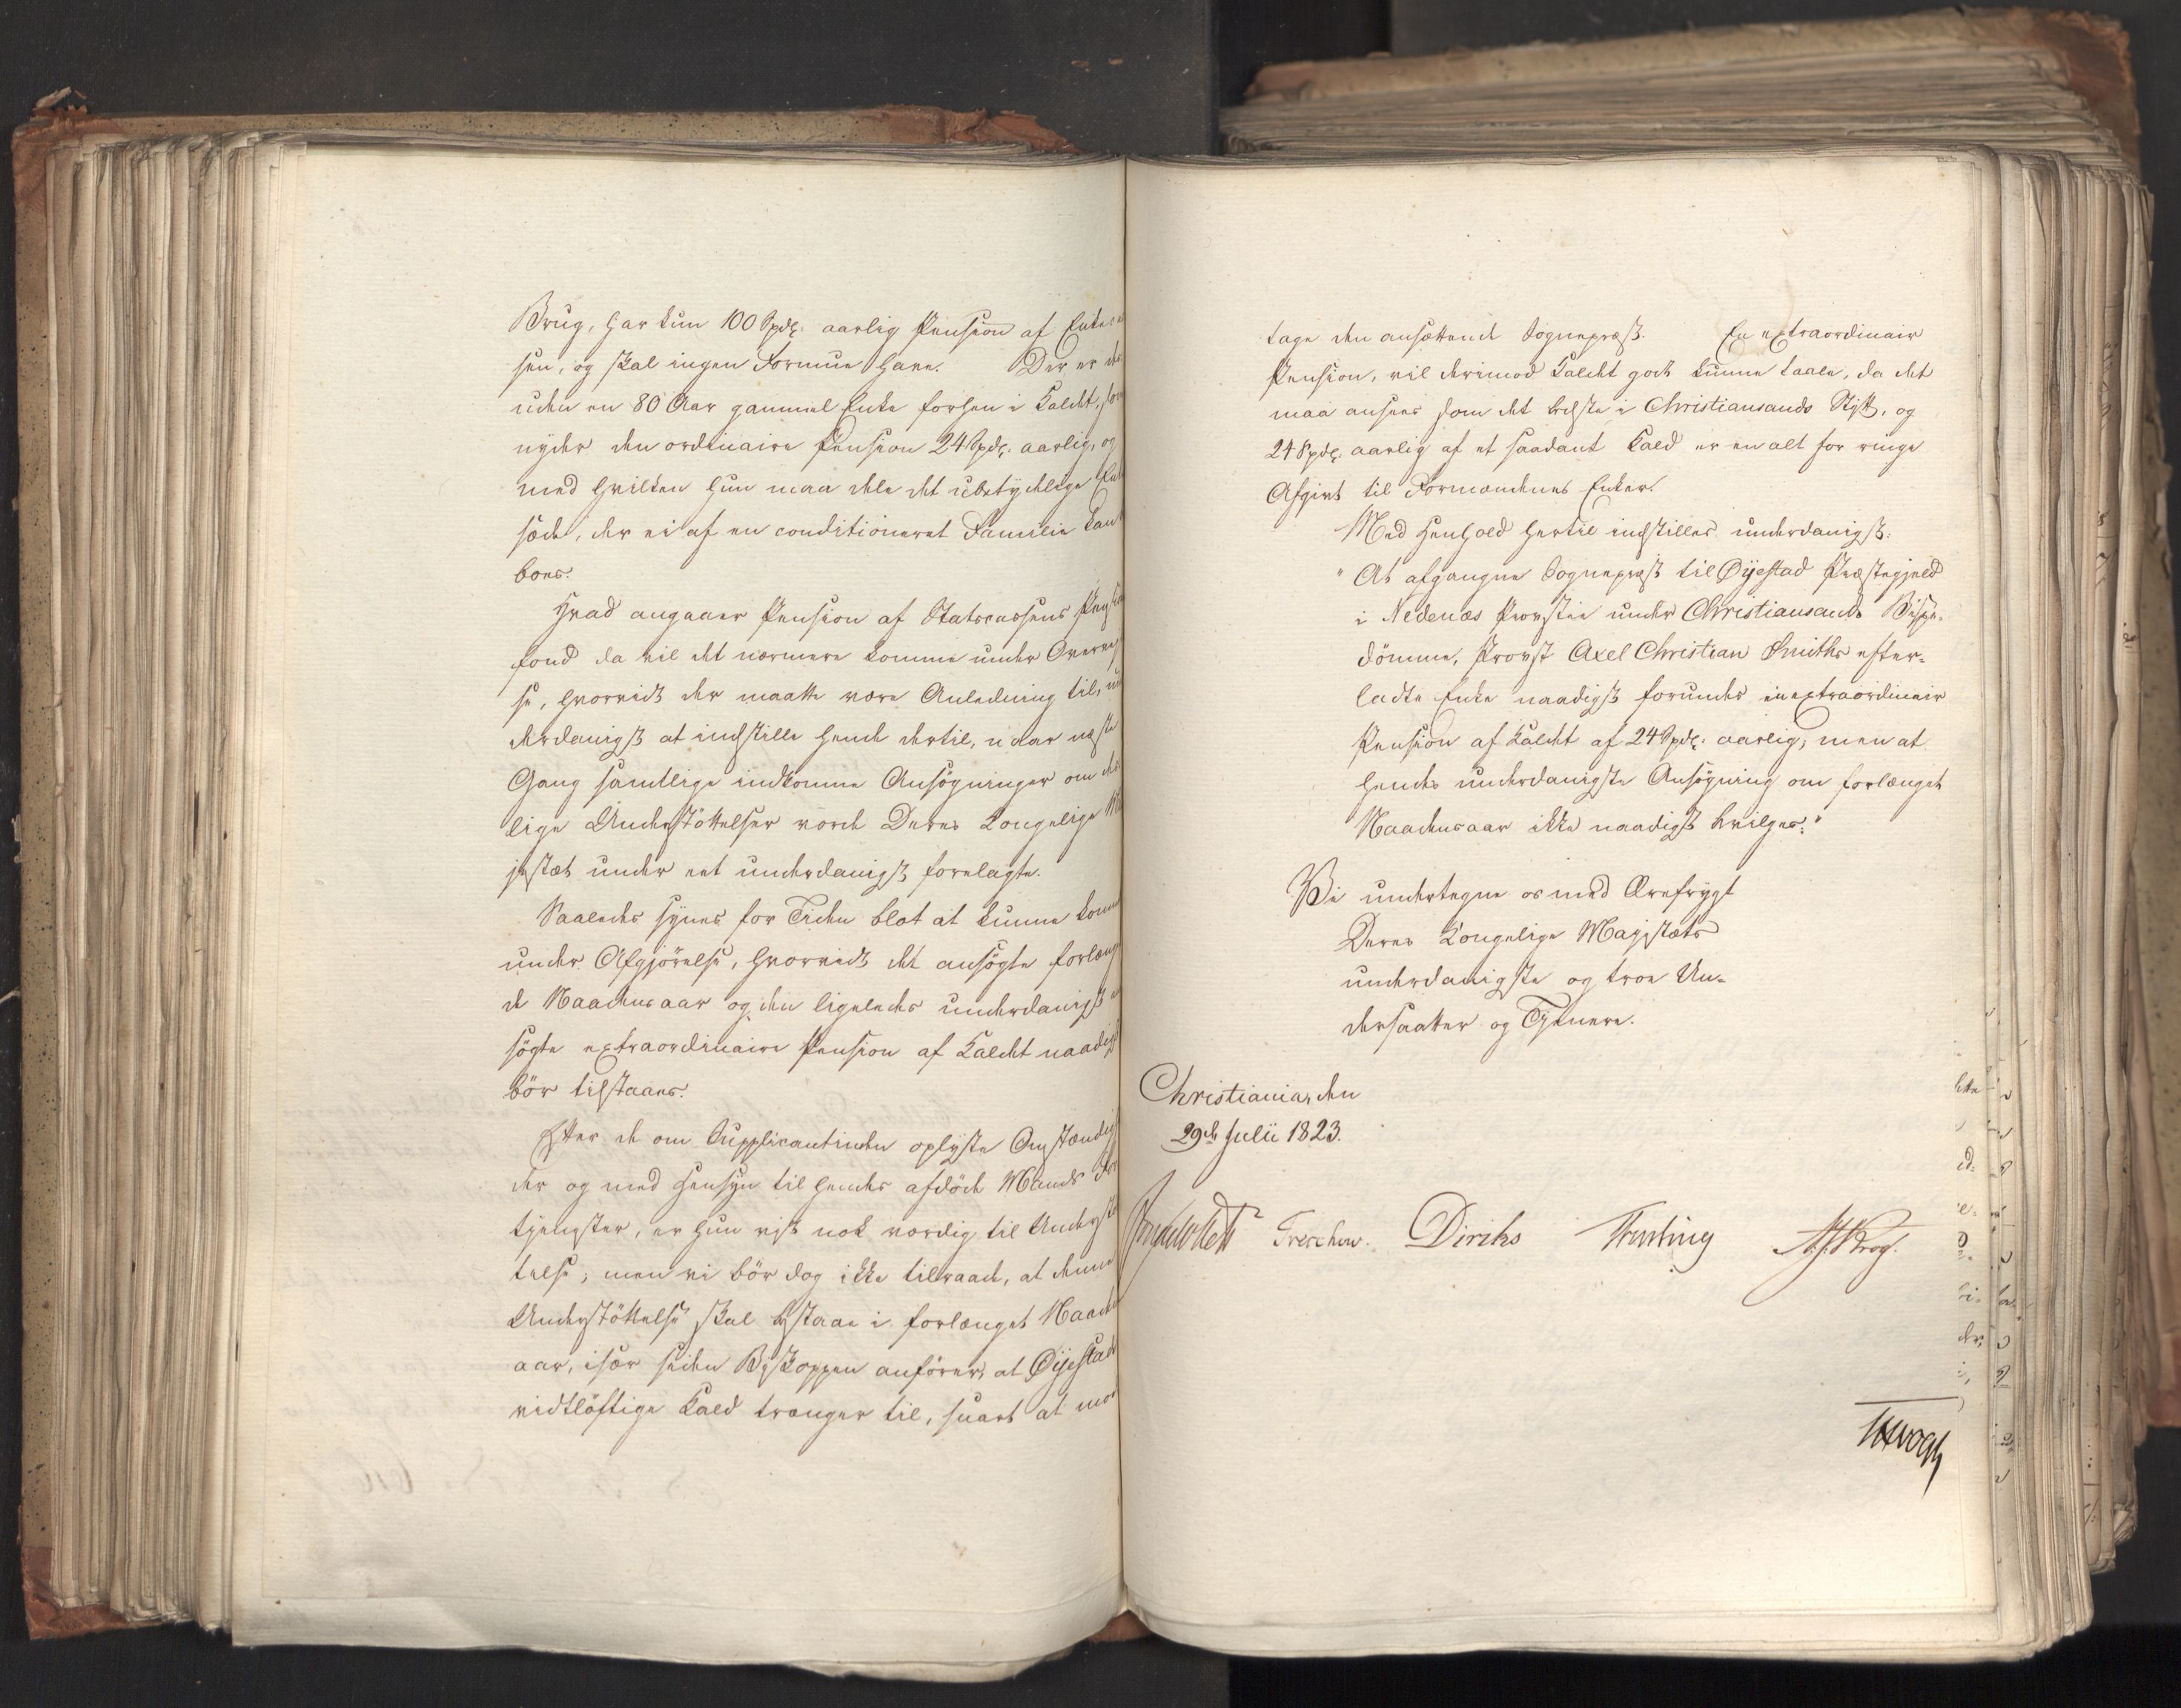 Brug, har kun 100 Spdlr. aarlig Pension af Enkecas
sen, og skal ingen Formue have. Der er des
uden en 80 Aar gammel Enke forhen i Kaldet, som
nyder den ordinaire Pension 24 Spdlr. aarlig, og
med hvilken hun maa dele det ubetydelige Enke
sæde, der ei af en conditioneret Familie kan be
boes.
Hvad angaaer Pension af Statscassens Pensions
fond da vil det nærmere komme under Overveiel
se, hvorvidt der maatte være Anledning til, un
derdanigst at indstille hende dertil, naar næste
Gang samtlige indkomne Ansøgninger om des
lige Understøttelser vorde Deres Kongelige Ma
jestæt under eet underdanigst forelagte.
Saaledes synes for Tiden blot at kunne komme
under Afgjørelse, hvorvidt det ansøgte forlænge
de Naadensaar og den ligeledes underdanigst an
søgte extraordinaire Pension af Kaldet naadigst
bør tilstaaes.
Efter de om Supplicantinden oplyste Omstændig
der og med Hensyn til hendes afdøde Mands For
tjenester, er hun vist nok værdig til Understøt
telse; men vi bør dog ikke tilraade, at denne
Understøttelse skal bestaae i forlænget Naadens
aar, især siden Biskoppen anfører, at Øyestad
vidtløftige Kald trænger til, snart at mod
tage den ansættende Sognepræst. En extraordinair
Pension, vil derimod Kaldet godt kunne taale, da det
maa ansees som det bedste i Christiansands Stift, og
24 Spdlr. aarlig af et saadant Kald er en alt for ringe
Afgivt til Formændenes Enker.
Med Henhold hertil indstilles underdanigst:
"At afgangne Sognepræst til Øyestad Præstegjeld
i Nedenæs Provstie under Christiansands Bispe-
dømme, Provst Axel Christian Smiths efter-
ladte Enke naadigst forundes en extraordinair
Pension af Kaldet af 24 Spdlr. aarlig; men at
hendes underdanigste Ansøgning om forlænget
Naadensaar ikke naadigst bevilges."
Vi undertegne os med Ærefrygt
Deres Kongelige Majestæts
underdanigste og troe Un-
dersaatter og Tjenere.
Christiania, den
29de Julii 1823.
Treschow. Diriks Krog.